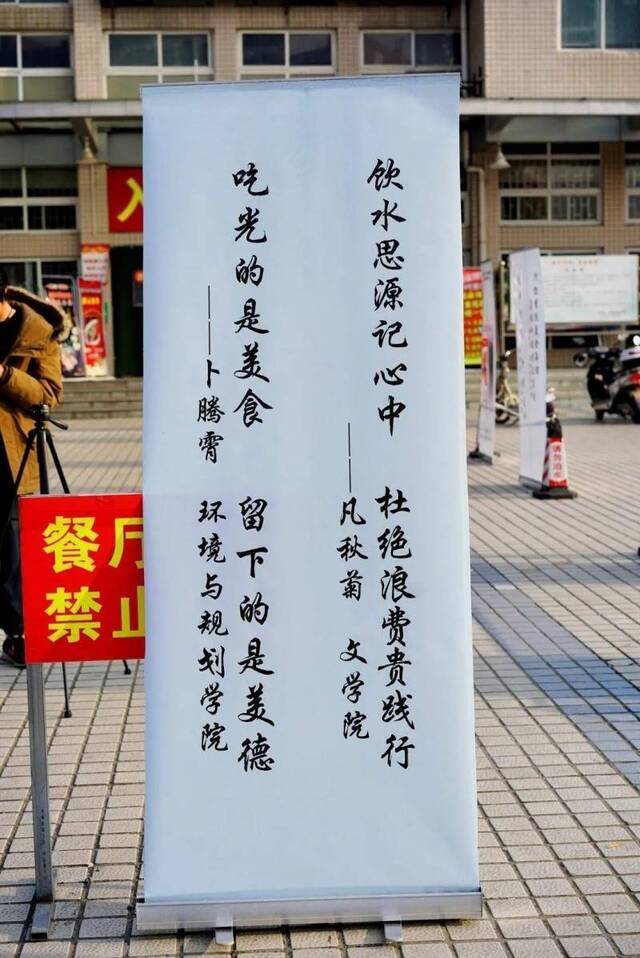 饮水思源记心中 杜绝浪费贵践行
——凡秋菊 文学院
吃光的是美食 留下的是美德
——卜腾霄 环境与规划学院
餐厅
禁止
入
请勿泊车